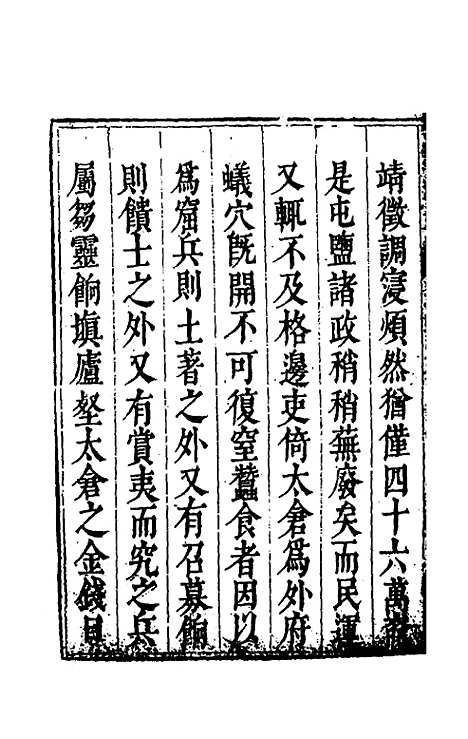 靖徵調寖煩然猶僅四十六萬
是屯鹽諸政稍稍蕪廢矣而民運
又輒不及格邊吏倚太倉爲外府
蟻穴旣開不可復窒蠶食者因以
爲窟兵則土著之外又有召募餉
則饋士之外又有賞夷而究之兵
屬芻靈餉塡廬壑太倉之金錢日